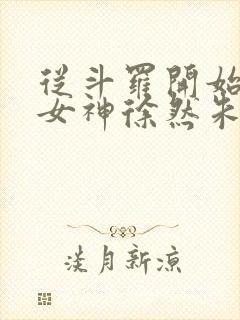 從斗羅開始
女神徐然朱
淡月新涼